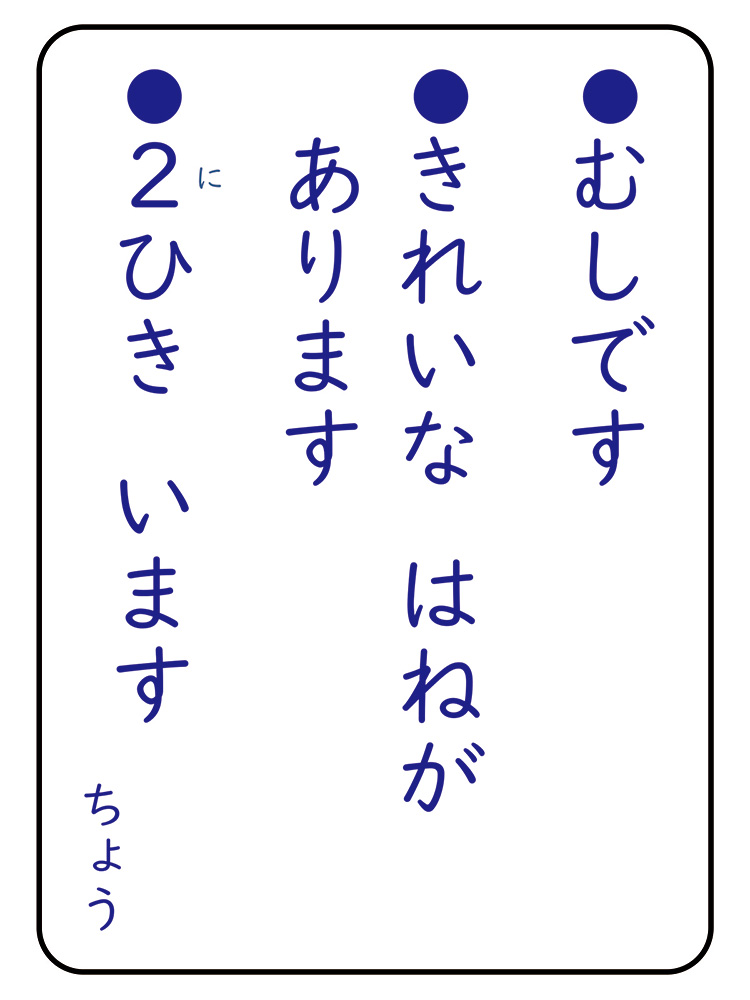 ●むしです
●きれいな　はねが
あります
●２ひき　います
に
ちょう